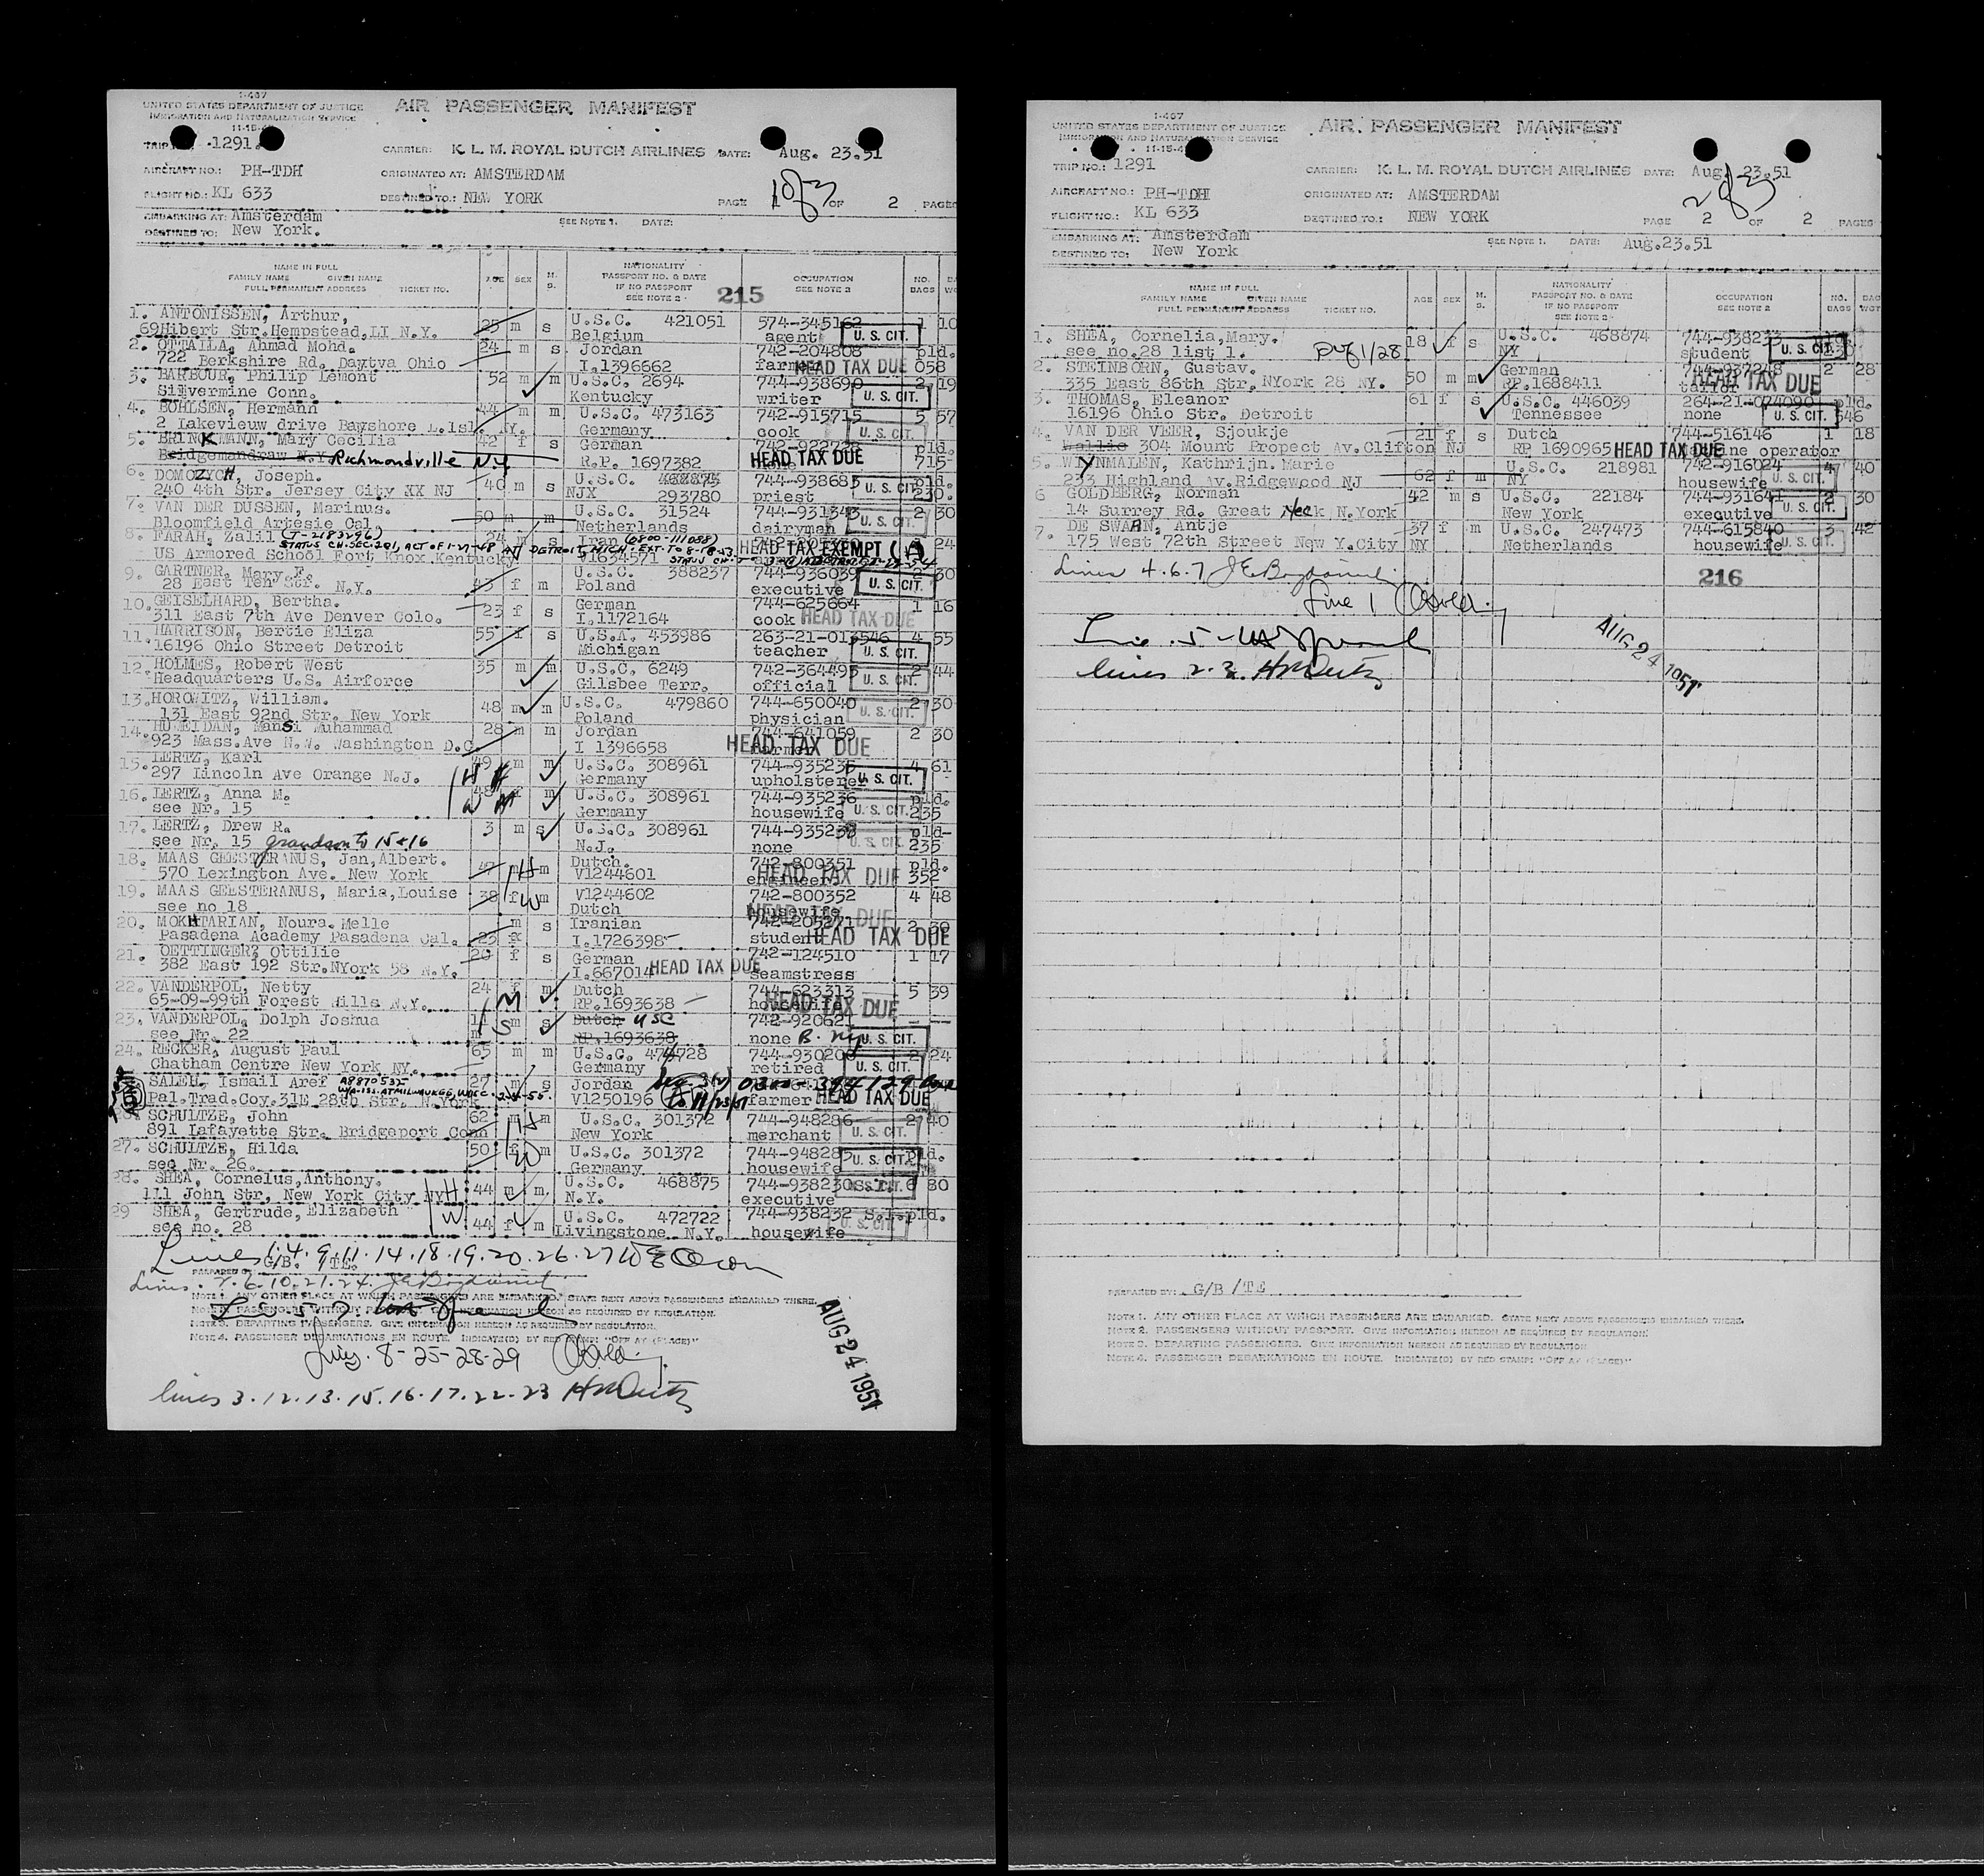 I-467
UNITED STATES DEPARTMENT OF JUSTICE
IMMIGRATION AND NATURALIZATION SERVICE
AIR PASSENGER MANIFEST
TRIP 1291.
CARRIER: K. L. M. ROYAL DUTCH AIRLINES DATE: Aug. 23.51
AIRCRAFT NO.: PH-TDH ORIGINATED AT: AMSTERDAM
FLIGHT NO.: KL 633 DESTINED TO.: NEW YORK PAGE 1 of 3 OF 2 PAGES
EMBARKING AT: Amsterdam SEE NOTE 1. DATE:
DESTINED TO: New York.
NAME IN FULL
FAMILY NAME GIVEN NAME
FULL PERMANENT ADDRESS TICKET NO.
AGE SEX M. S.
NATIONALITY
PASSPORT NO. & DATE
IF NO PASSPORT
SEE NOTE 2
OCCUPATION
SEE NOTE 2
NO. BAGS
215
1. ANTONISSEN, Arthur, 25 m s U.S.C. 421051 574-345162 1 10
69Hibert Str.Hempstead,LI N.Y. Belgium agent U. S. CIT.
2. OTTALLA, Ahmad Mohd. 24 m s Jordan 742-204808 pld.
722 Berkshire Rd. Daytva Ohio I.1396662 HEAD TAX DUE 058
3. BARBOUR, Philip Lemont 52 m m U.S.C. 2694 744-938690 2 19
Silvermine Conn. Kentucky writer U. S. CIT.
4. BOHLSEN, Hermann 44 m m U.S.C. 473163 742-915715 5 57
2 Lakevieuw drive Bayshore L.Isl. NY. Germany cook U. S. CIT.
5. BRINKMANN, Mary Cecilia 42 f s German 742-922728 pld.
Bridgemandraw N.Y. Richmondville NY R.P. 1697382 HEAD TAX DUE 715
6. DOMOZYCH, Joseph. 40 m s U.S.C. 744-938685 pld.
240 4th Str. Jersey City XX NJ NJX 293780 priest U. S. CIT. 230.
7. VAN DER DUSSEN, Marinus. 50 m m U.S.C. 31524 744-931343 2 30
Bloomfield Artesie Cal. Netherlands dairyman U. S. CIT.
8. FARAH, Zalil (T-2183296) 24 m s Iran (0800-111088) 24
STATUS CH.SEC.201, ACT OF 1-27-48 AT DETROIT, MICH. HEAD TAX EXEMPT
US Armored School Fort Knox Kentucky V1634571
9. GARTNER, Mary F. 43 f m U.S.C. 388237 744-936039 2 30
28 East Ten Str. N.Y. Poland executive U. S. CIT.
10. GEISELHARD, Bertha. 23 f s German 744-625664 1 16
311 East 7th Ave Denver Colo. I.1172164 cook HEAD TAX DUE
11. HARRISON, Bertie Eliza 55 f s U.S.A. 453986 263-21-013546 4 55
16196 Ohio Street Detroit Michigan teacher U. S. CIT.
12. HOLMES, Robert West 35 m m U.S.C. 6249 742-364495 2 44
Headquarters U.S. Airforce Gilsbee Terr. official U. S. CIT.
13. HOROWITZ, William. 48 m m U.S.C. 479860 744-650040 2 30
131 East 92nd Str. New York Poland physician U. S. CIT.
14. HUMEIDAN, Mansi Muhammad 28 m m Jordan 744-641059 2 30
923 Mass.Ave N.W. Washington D.C. I 1396658 farmer HEAD TAX DUE
15. LERTZ, Karl 49 m m U.S.C. 308961 744-935235 4 61
297 Lincoln Ave Orange N.J. H Germany upholsterer U. S. CIT.
16. LERTZ, Anna M. 48 f m U.S.C. 308961 744-935236 pld.
see Nr. 15 W Germany housewife U. S. CIT. 235
17. LERTZ, Drew R. 3 m s U.S.C. 308961 744-935238 pld-
see Nr. 15 grandson to 15+16 N.J. none U. S. CIT. 235
18. MAAS GEESTERANUS, Jan,Albert. 47 m H m Dutch. 742-800351 pld.
570 Lexington Ave. New York V1244601 engineers HEAD TAX DUE 352
19. MAAS GEESTERANUS, Maria,Louise 38 f W m V1244602 742-800352 4 48
see no 18 Dutch housewife HEAD TAX DUE
20. MOKHTARIAN, Noura. Melle m s Iranian 742-205271 2 30
Pasadena Academy Pasadena Cal. 23 I.1726398 student HEAD TAX DUE
21. OETTINGER, Ottilie 20 f s German 742-124510 1 17
382 East 192 Str.NYork 58 N.Y. I.667014 HEAD TAX DUE seamstress
22. VANDERPOL, Netty 24 f m Dutch 744-623313 5 39
65-09-99th Forest Hills N.Y. M RP.1693638 housewife HEAD TAX DUE
23. VANDERPOL, Dolph Joshua 11 m s Dutch USC 742-920621 - --
see Nr. 22 S RP.1693638 none B. NY U. S. CIT.
24. RECKER, August Paul 65 m m U.S.C. 474728 744-930200 2 24
Chatham Centre New York NY. Germany retired U. S. CIT.
SALEH, Ismail Aref A8870532 27 m s Jordan 0300-394129
Pal.Trad.Coy.31E 28th Str. N.York V1250196 farmer HEAD TAX DUE
SCHULTZE, John 62 m H m U.S.C. 301372 744-948286 2 40
891 Lafayette Str. Bridgeport Conn New York merchant U. S. CIT.
27. SCHULTZE, Hilda 50 f W m U.S.C. 301372 744-948285 pld.
see Nr. 26. Germany housewife U. S. CIT.
28. SHEA, Cornelus,Anthony. H 44 m m U.S.C. 468875 744-938230 6 80
111 John Str, New York City NY N.Y. executive
29 SHEA, Gertrude,Elizabeth W 44 f m U.S.C. 472722 744-938232 pld.
see no. 28 Livingstone N.Y. housewife U. S. CIT.
Lines 1.4.9.11.14.18.19.20.26.27
PREPARED BY: G/B. /TE.
Lines 2.6.10.21.24.
NOTE 1. ANY OTHER PLACE AT WHICH PASSENGERS ARE EMBARKED. STATE NEXT ABOVE PASSENGERS EMBARKED THERE.
NOTE 2. PASSENGERS WITHOUT PASSPORT. GIVE INFORMATION HEREON AS REQUIRED BY REGULATION.
NOTE 3. DEPARTING PASSENGERS. GIVE INFORMATION HEREON AS REQUIRED BY REGULATION.
NOTE 4. PASSENGER DEBARKATIONS EN ROUTE. INDICATE(D) BY RED STAMP: "OFF AT (PLACE)"
Lines. 8-25-28-29
lines 3.12.13.15.16.17.22.23
AUG 24 1951
I-467
UNITED STATES DEPARTMENT OF JUSTICE
IMMIGRATION AND NATURALIZATION SERVICE
AIR PASSENGER MANIFEST
TRIP NO.: 1291 CARRIER: K. L. M. ROYAL DUTCH AIRLINES DATE: Aug. 23.51
AIRCRAFT NO.: PH-TDH ORIGINATED AT: AMSTERDAM
FLIGHT NO.: KL 633 DESTINED TO.: NEW YORK PAGE 2 OF 2 PAGES
2 of 3
EMBARKING AT: Amsterdam SEE NOTE 1. DATE: Aug.23.51
DESTINED TO: New York
NAME IN FULL
FAMILY NAME GIVEN NAME
FULL PERMANENT ADDRESS TICKET NO.
AGE SEX M. S.
NATIONALITY
PASSPORT NO. & DATE
IF NO PASSPORT
SEE NOTE 2
OCCUPATION
SEE NOTE 2
NO. BAGS
1. SHEA, Cornelia,Mary. 18 f s U.S.C. 468874 744-938233
see no.28 list 1. NY student U. S. CIT.
2. STEINBORN, Gustav. 50 m m German 744-937248 2 28
335 East 86th Str. NYork 28 NY. RP.1688411 HEAD TAX DUE
3. THOMAS, Eleanor 61 f s U.S.C. 446039 264-21-074090 pld.
16196 Ohio Str. Detroit Tennessee none U. S. CIT. 546
4. VAN DER VEER, Sjoukje 21 f s Dutch 744-516146 1 18
304 Mount Propect Av.Clifton NJ RP 1690965 HEAD TAX DUE machine operator
5. WYNMALEN, Kathrijn. Marie 62 f m U.S.C. 218981 742-916024 4 40
233 Highland Av.Ridgewood NJ NY housewife U. S. CIT.
6 GOLDBERG, Norman 42 m s U.S.C. 22184 744-931641 2 30
14 Surrey Rd. Great Neck N.York New York executive U. S. CIT.
7. DE SWAAN, Antje 37 f m U.S.C. 247473 744-615840 3 42
175 West 72th Street New Y.City NY Netherlands housewife U. S. CIT.
Lines 4.6.7
Line 1
216
Line .5-
lines 2.3.
AUG 24 1951
PREPARED BY: G/B /TE
NOTE 1. ANY OTHER PLACE AT WHICH PASSENGERS ARE EMBARKED. STATE NEXT ABOVE PASSENGERS EMBARKED THERE.
NOTE 2. PASSENGERS WITHOUT PASSPORT. GIVE INFORMATION HEREON AS REQUIRED BY REGULATION.
NOTE 3. DEPARTING PASSENGERS. GIVE INFORMATION HEREON AS REQUIRED BY REGULATION
NOTE 4. PASSENGER DEBARKATIONS EN ROUTE. INDICATE(D) BY RED STAMP: "OFF AT (PLACE)"